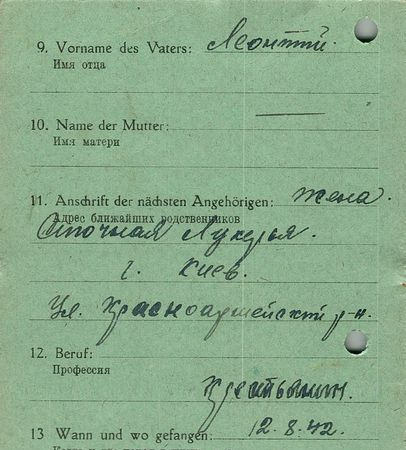 9. Vorname des Vaters: Леонтий.
Имя отца
10. Name der Mutter: —
Имя матери
11. Anschrift der nächsten Angehörigen: жена.
Адрес ближайших родственников
Сточная Лукерья.
г. Киев.
Ул. Красноармейский р-н.
12. Beruf:
Профессия
Крестьянин.
13 Wann und wo gefangen: 12.8.42.